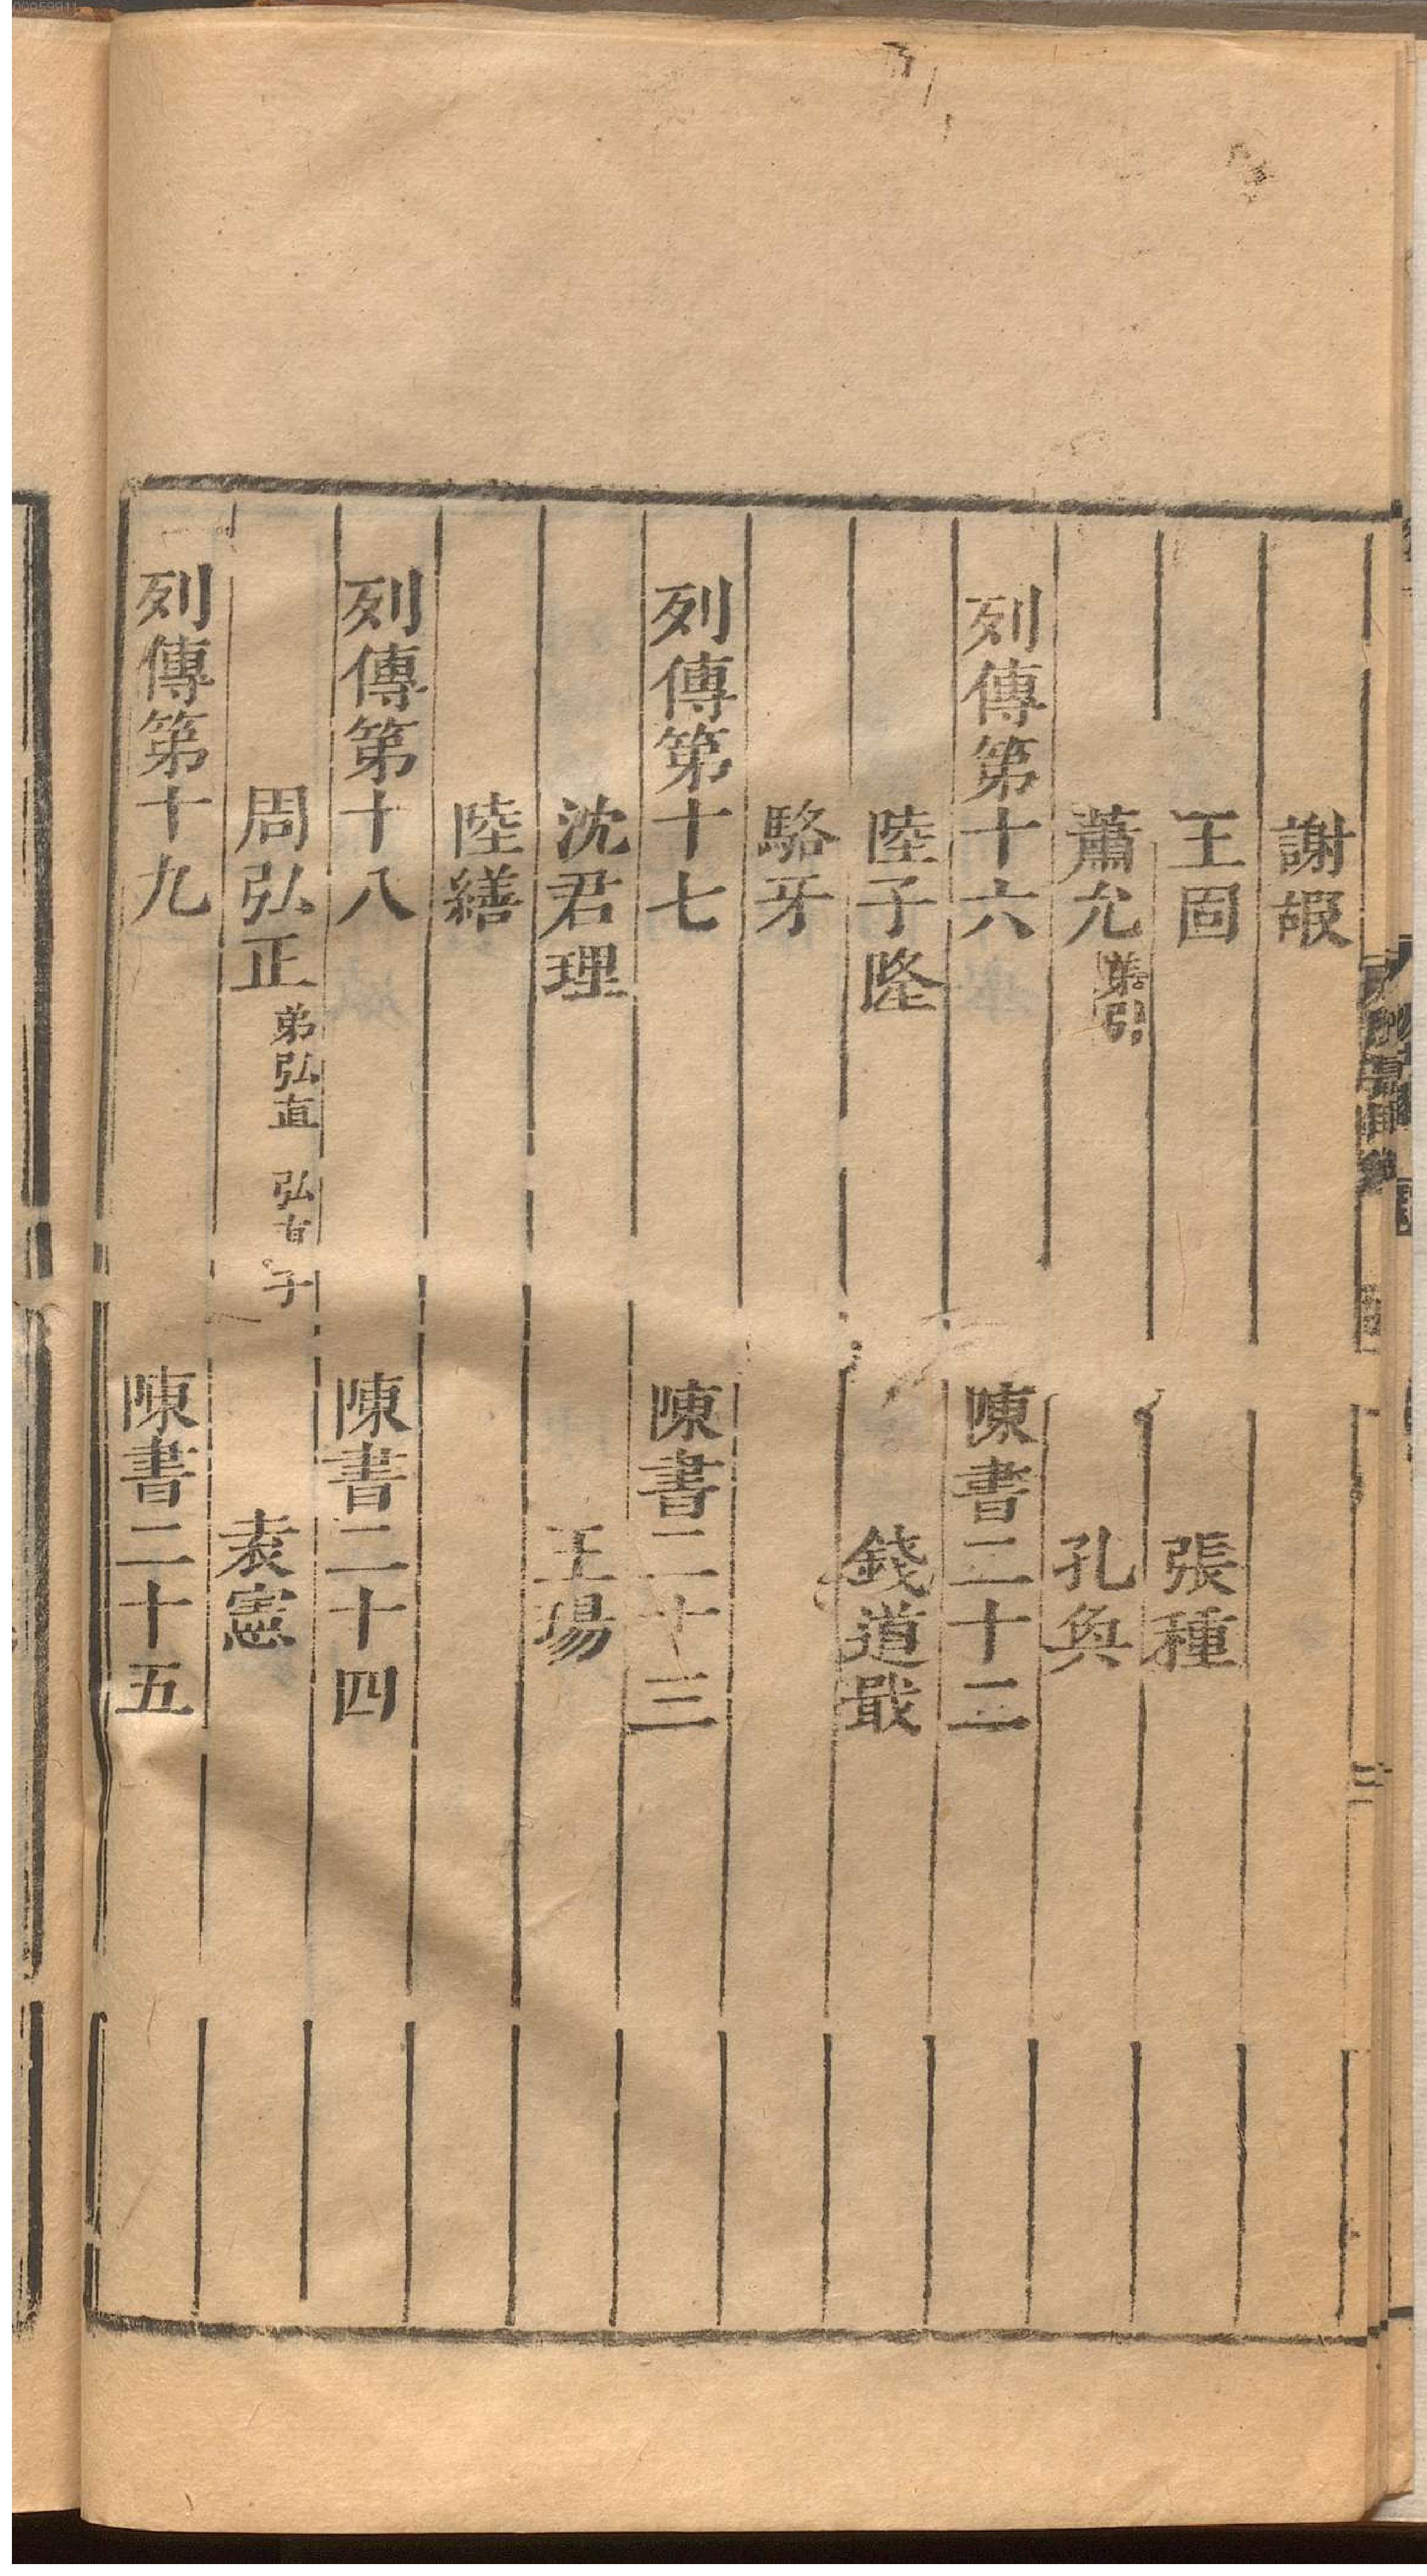 謝嘏
王固　張種
蕭允弟引　孔奐
列傳第十六　陳書二十二
陸子隆　錢道戢
駱牙
列傳第十七　陳書二十三
沈君理　王瑒
陸繕
列傳第十八　陳書二十四
周弘正弟弘直　弘直子　袁憲
列傳第十九　陳書二十五